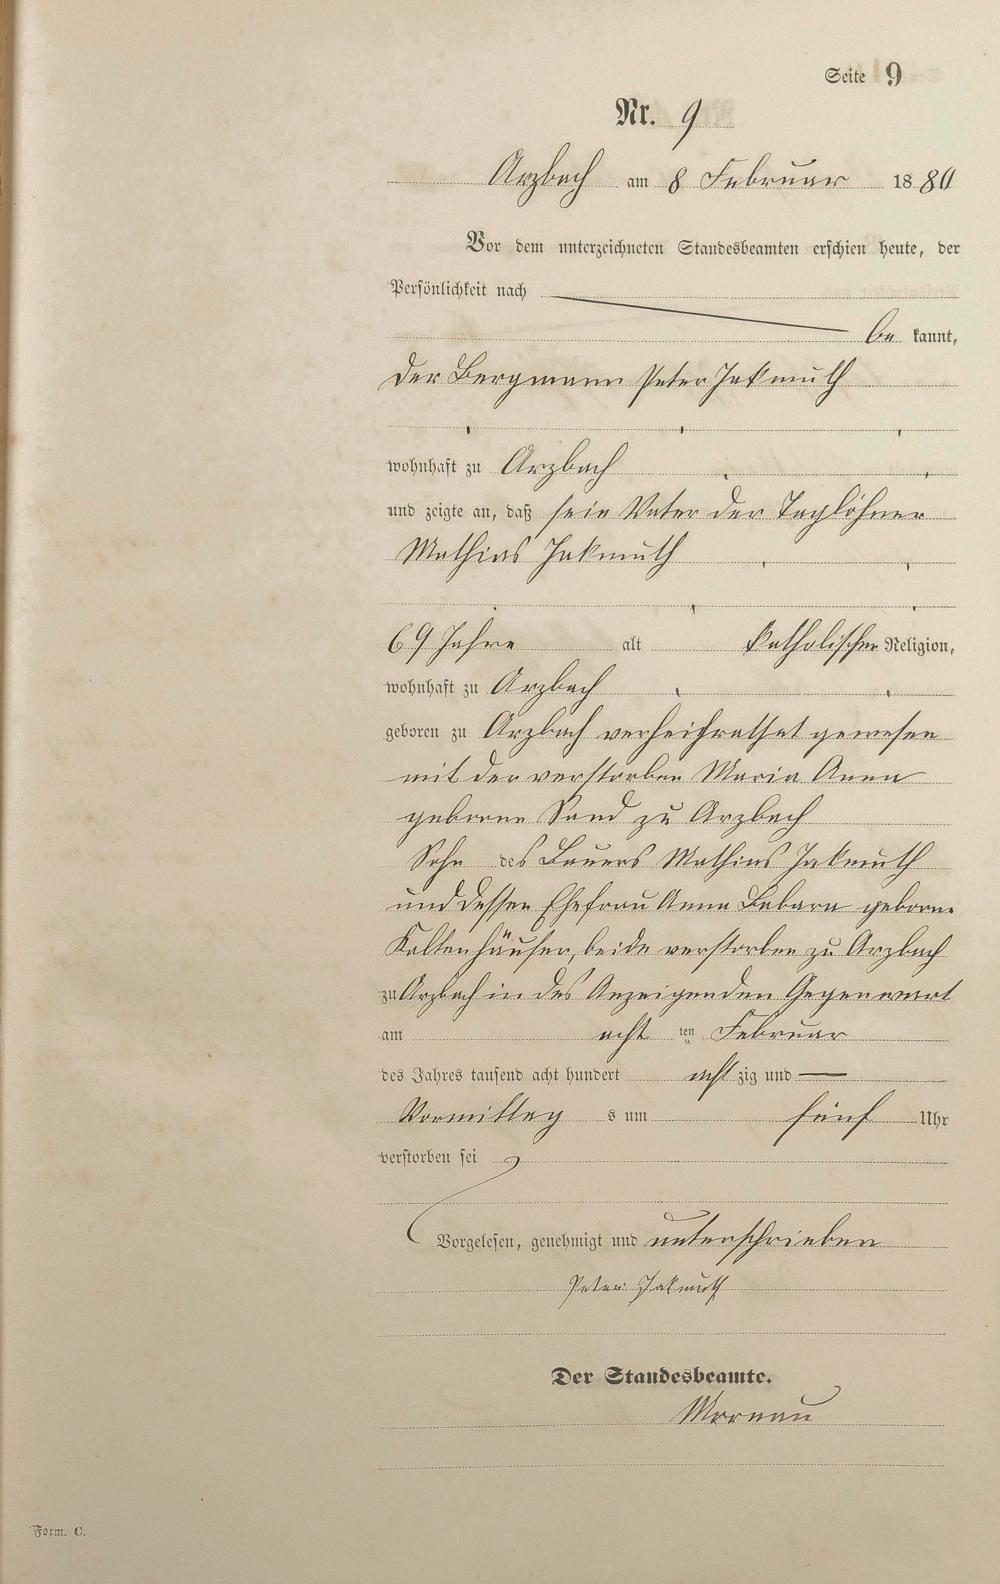 Seite 9
Nr. 9
Arzbach am 8 Februar 1880
Vor dem unterzeichneten Standesbeamten erschien heute, der
Persönlichkeit nach
be kannt,
der Bergmann Peter Jakmuth
wohnhaft zu Arzbach
und zeigte an, daß sein Vater der Taglöhner
Mathias Jakmuth
69 Jahre alt katholischer Religion,
wohnhaft zu Arzbach
geboren zu Arzbach verheirathet gewesen
mit der verstorben Maria Anna
geborne Sand zu Arzbach
Sohn des Bauers Mathias Jakmuth
und dessen Ehefrau Anna Babara geborne
Kaltenhäuser, beide verstorben zu Arzbach
zu Arzbach in des Anzeigenden Gegenwart
am acht ten Februar
des Jahres tausend acht hundert acht zig und —
Vormittag s um fünf Uhr
verstorben sei
Vorgelesen, genehmigt und unterschrieben
Peter Jakmuth
Der Standesbeamte.
Form. C.